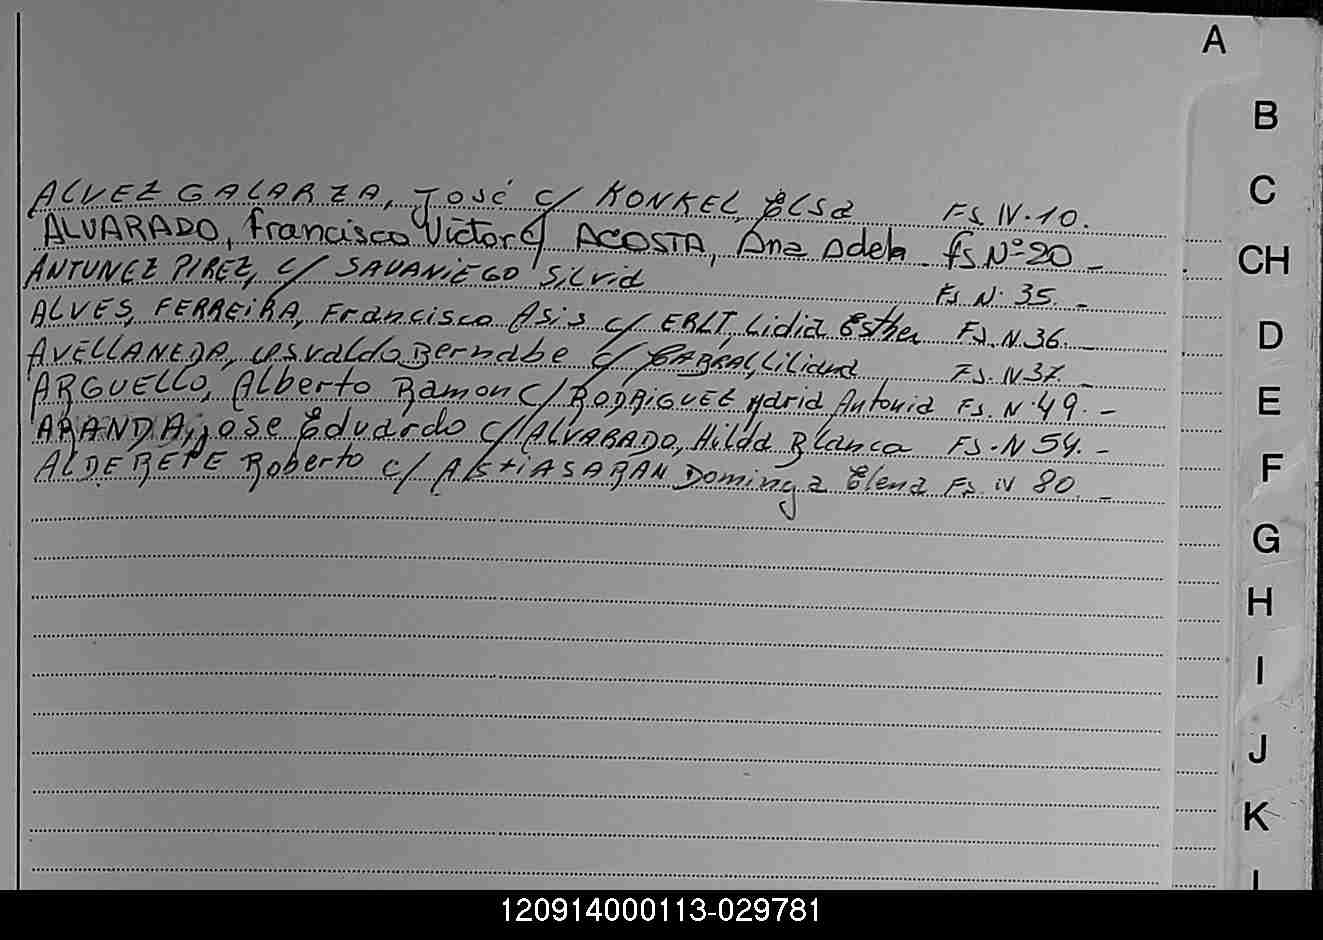 A
B
C
CH
D
E
F
G
H
I
J
K
ALVEZ GALARZA, José c/ KONKEL, Elsa Fs N·10.
ALVARADO, Francisco Victor c/ ACOSTA, Ana Adela fs Nº 20 -
ANTUNEZ PIREZ, c/ SAVANIEGO Silvia Fs. N· 35. -
ALVES, FERREIRA, Francisco Asis c/ ERLT, Lidia Esther Fs. N. 36. -
AVELLANEDA, Osvaldo Bernabe c/ CABRAL, Liliana Fs. N 37. -
ARGUELLO, Alberto Ramon c/ RODRIGUEZ Maria Antonia Fs. N·49. -
ARANDA, Jose Eduardo c/ ALVARADO, Hilda Blanca Fs. N 54. -
ALDERETE Roberto c/ Dominga Elena Fs. N 80. -
120914000113-029781